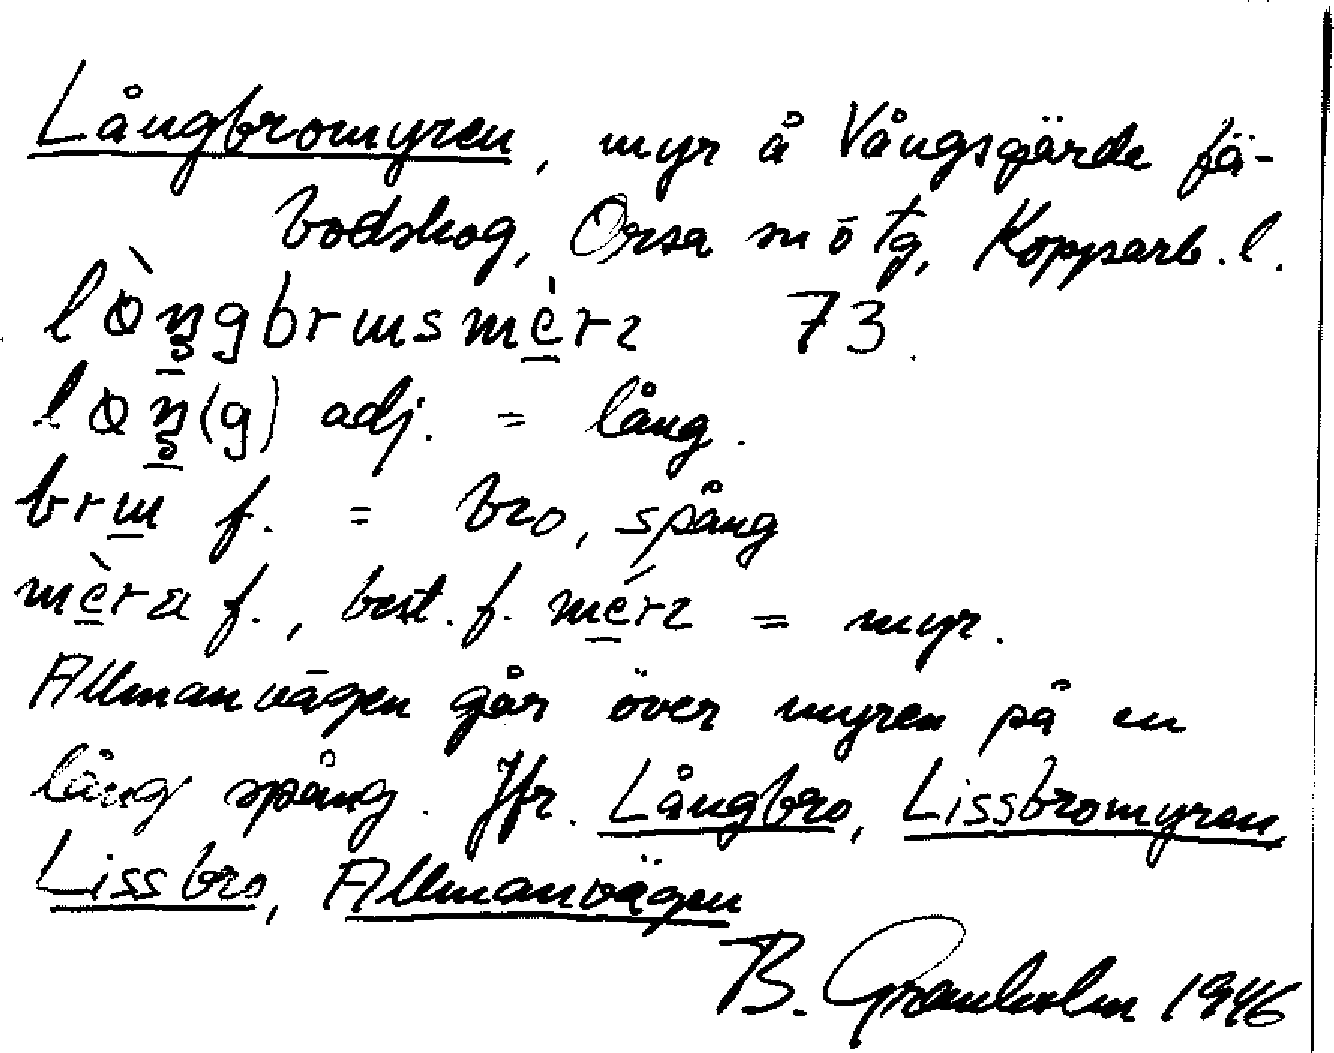 Långbromyren, myr å Vångsgärde fä-
bodskog, Orsa sn ö tg, Kopparb. l.
73.
adj. = lång.
f. = bro, spång
f., best. f. = myr.
Allmanvägen går över myren på en
lång spång. Jfr. Långbro, Lissbromyren,
Lissbro, Allmanvägen
B. Granholm 1946